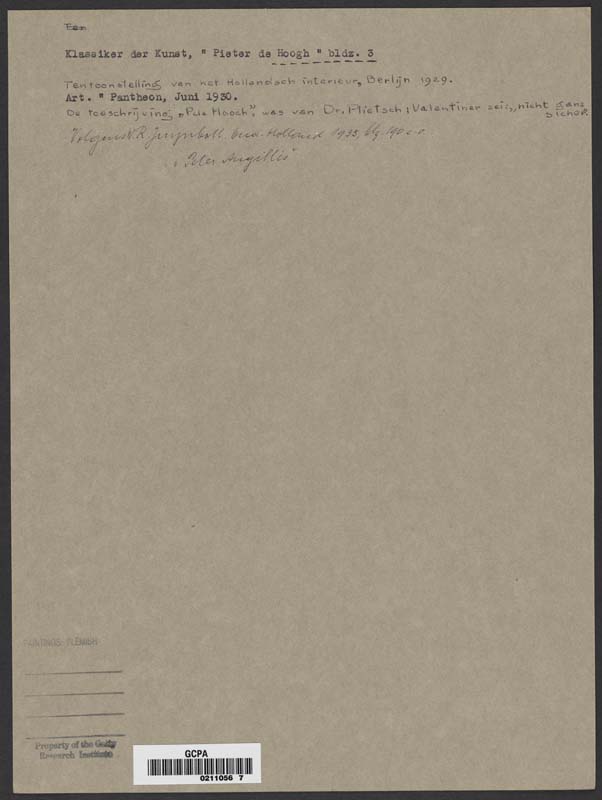 Een
Klassiker der Kunst, " Pieter de Hoogh " bldz. 3
Tentoonstelling van het Hollandsch interieur, Berlijn 1929.
Art. " Pantheon, Juni 1930.
De toeschrijving „P. de Hooch", was van Dr. Plietsch; Valentiner zei: „nicht ganz
sicher.
Volgens R. Juynboll. Oud-Holland 1933, blz. 190 e.o.
„ Peter Angillis"
PAINTINGS: FLEMISH
Property of the Getty
Research Institute
GCPA
0211056 7